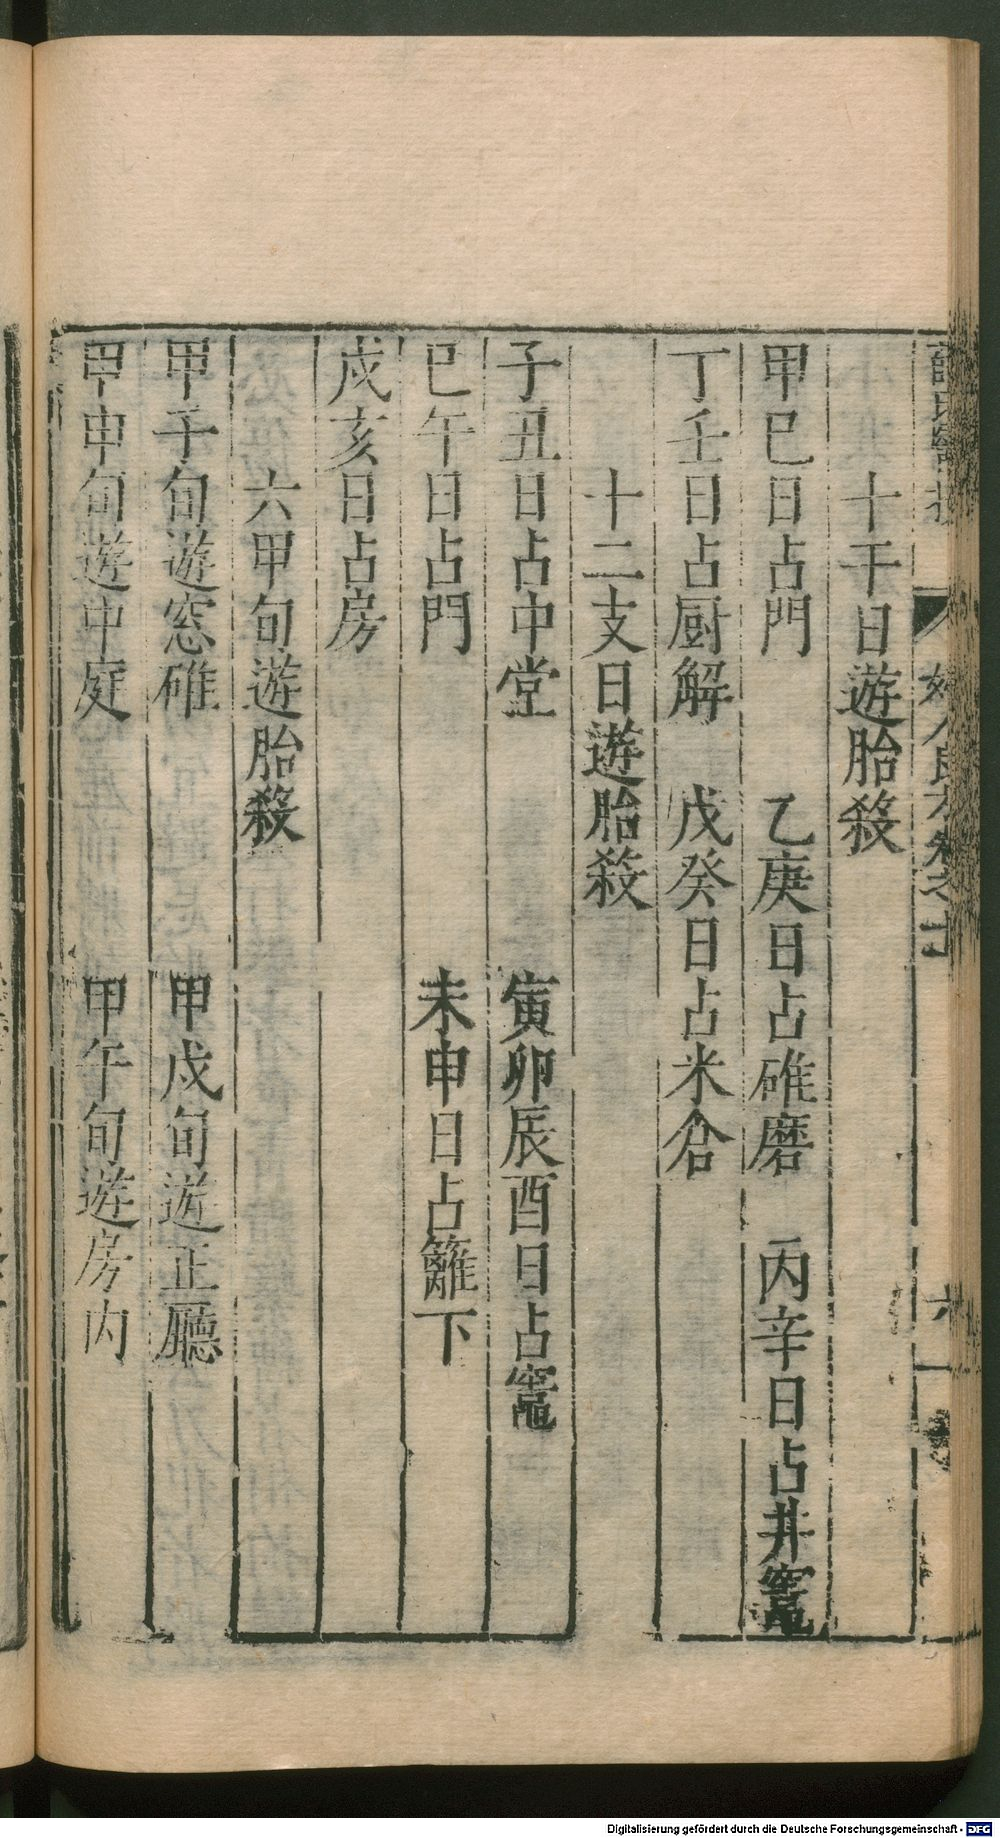 婦人良方卷之十
六
十干日遊胎殺
甲巳日占門　乙庚日占碓磨　丙辛日占井竈
丁壬日占厨解　戊癸日占米倉
十二支日遊胎殺
子丑日占中堂　寅卯辰酉日占竈
巳午日占門　未申日占籬下
戌亥日占房
六甲旬遊胎殺
甲子旬遊窓碓　甲戌旬遊正廳
甲申旬遊中庭　甲午旬遊房内
Digitalisierung gefördert durch die Deutsche Forschungsgemeinschaft - DFG